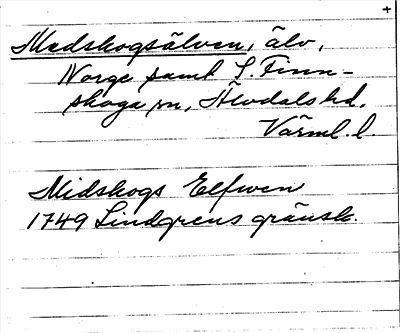 +
Medskogsälven, älv,
Norge samt S. Finn-
skoga sn, Älvdals hd,
Värml. l.
Midskogs Elfwen
1749 Lindgrens gränsk.